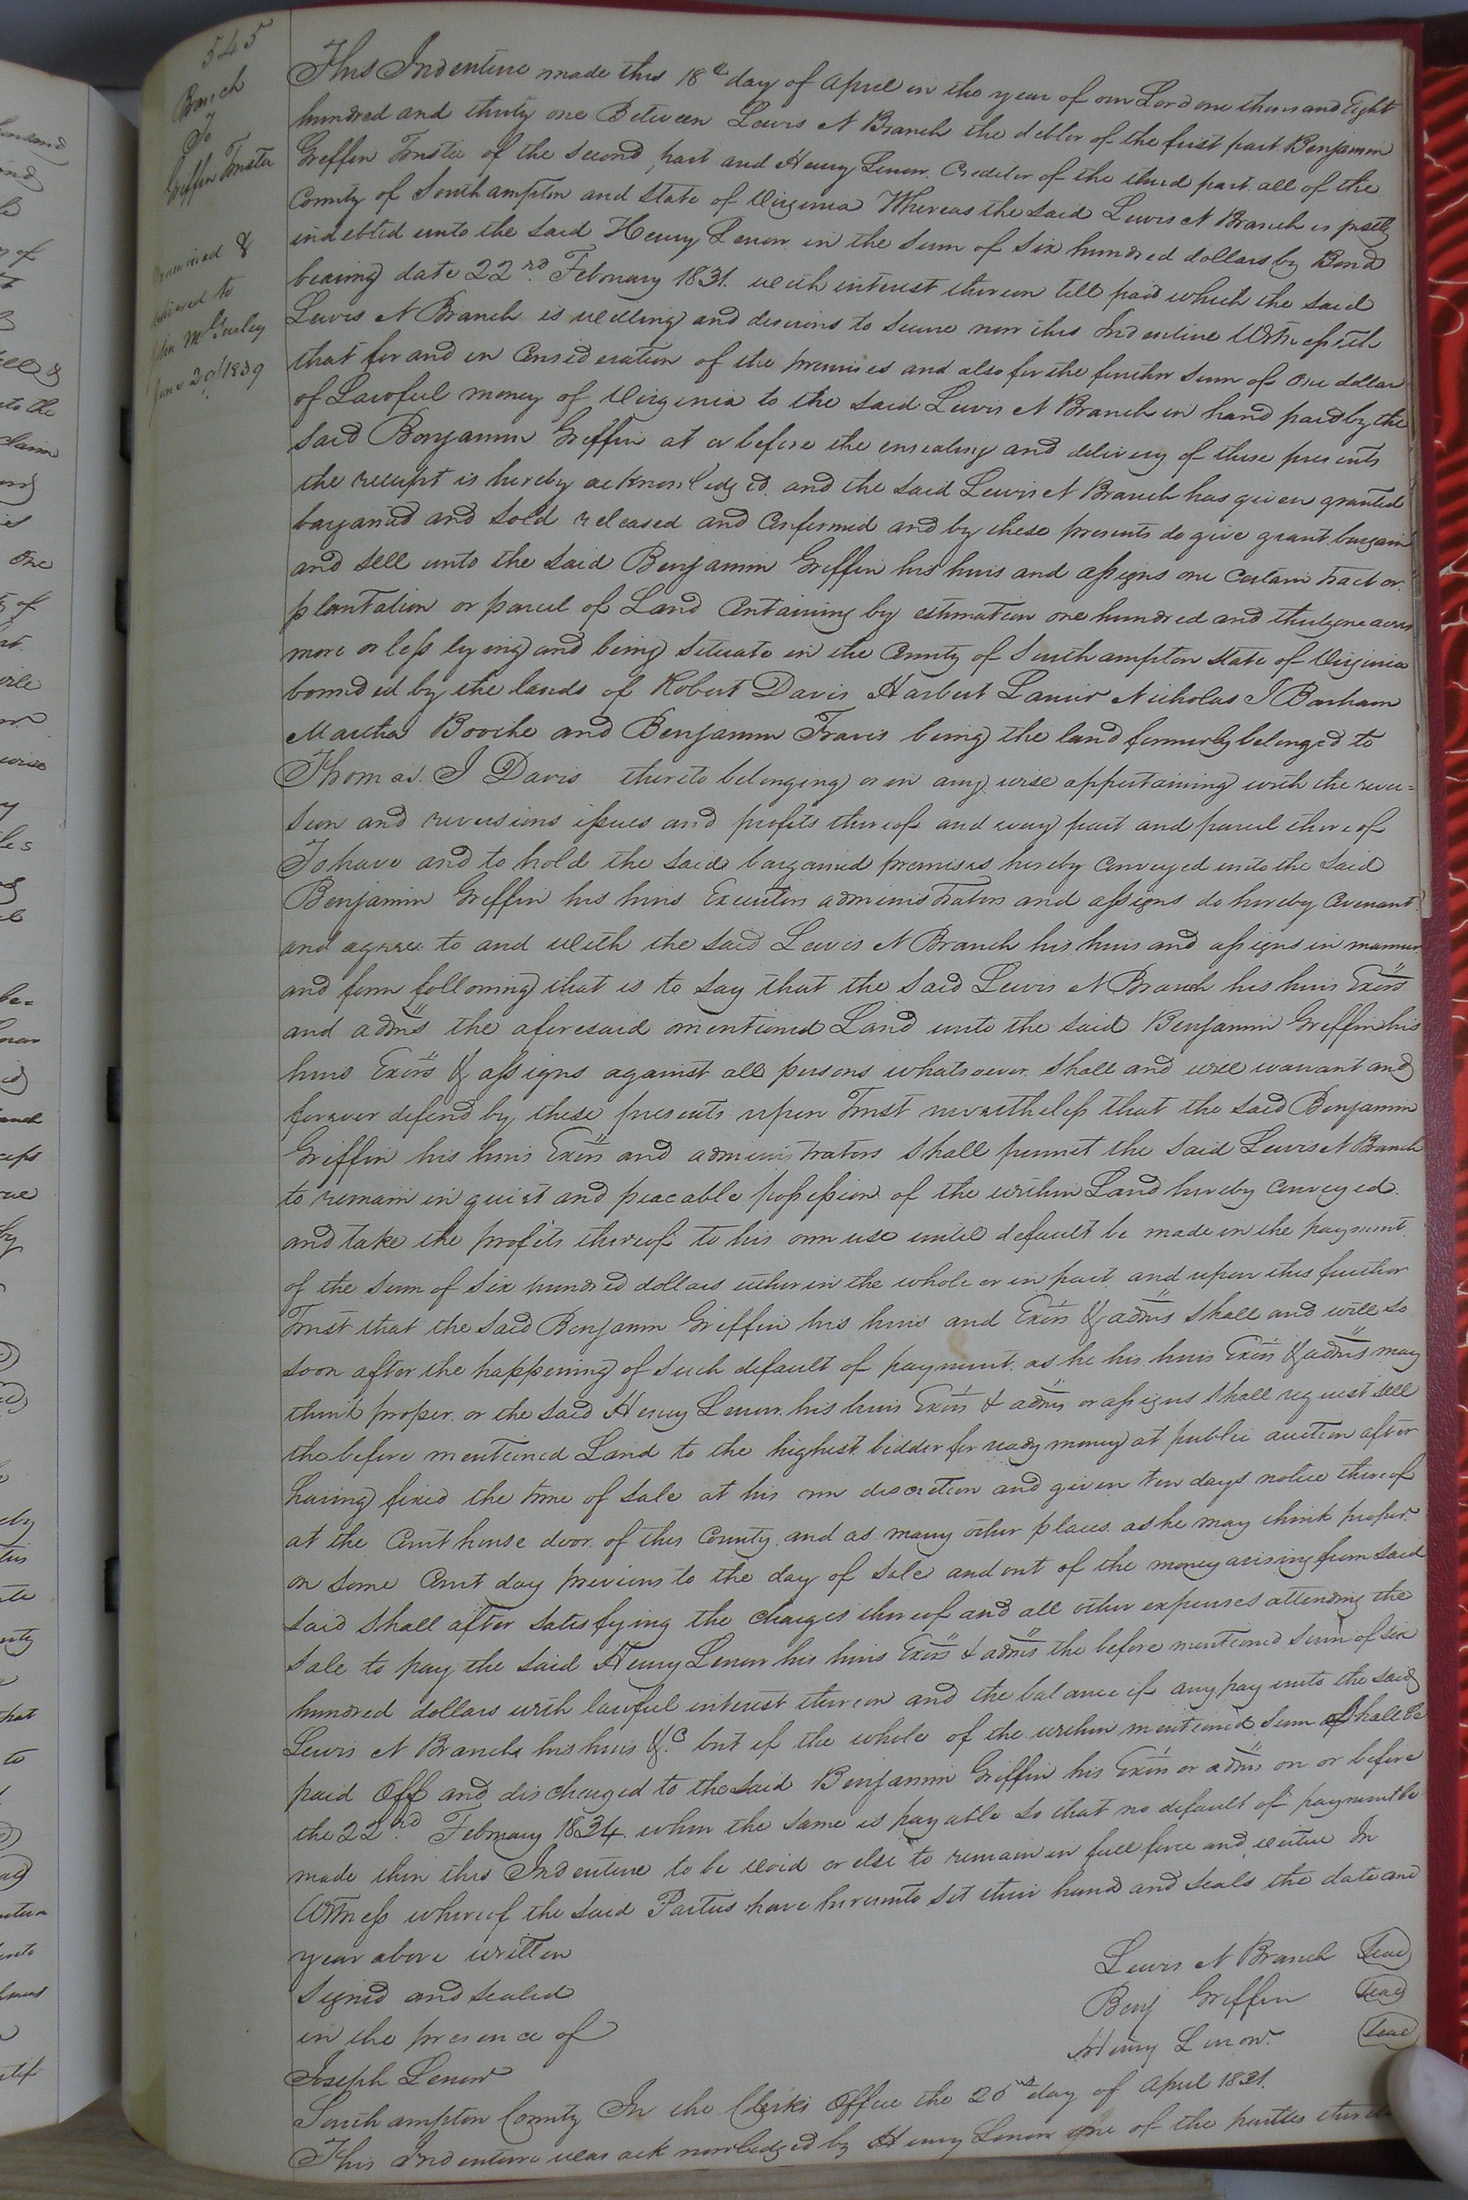 545
Branch
To
Griffin Trustee
Examined &
delivered to
John McGurley
June 29/1839
This Indenture made this 18th day of April in the year of our Lord one thousand Eight
hundred and thirty one Between Lewis N Branch the debtor of the first part Benjamin
Griffin Trustee of the second part and Henry Lenow Creditor of the third part all of the
County of Southampton and State of Virginia Whereas the said Lewis N Branch is justly
indebted unto the said Henry Lenow in the sum of six hundred dollars by Bond
bearing date 22nd February 1831. with interest thereon till paid which the said
Lewis N Branch is willing and desirous to secure now this Indenture Witnesseth
that for and in Consideration of the premises and also for the further sum of one dollar
of Lawful money of Virginia to the said Lewis N Branch in hand paid by the
said Benjamin Griffin at or before the ensealing and delivery of these presents
the receipt is hereby acknowledged and the said Lewis N Branch has given granted
bargained and sold released and Confirmed and by these presents do give grant bargain
and sell unto the said Benjamin Griffin his heirs and assigns one Certain tract or
plantation or parcel of Land Containing by estimation one hundred and thirty one acres
more or less lying and being situate in the County of Southampton State of Virginia
bounded by the lands of Robert Davis Harbert Lanier Nicholas J Barham
Martha Boothe and Benjamin Travis being the land formerly belonged to
Thomas. J Davis thereto belonging or in any wise appertaining with the rever=
sion and reversions issues and profits thereof and every part and parcel thereof
To have and to hold the said bargained premises hereby Conveyed unto the said
Benjamin Griffin his heirs Executors administrators and assigns do hereby Covenant
and agree to and with the said Lewis N Branch his heirs and assigns in manner
and form following that is to say that the said Lewis N Branch his heirs Exors
and admrs the aforesaid mentioned Land unto the said Benjamin Griffin his
heirs Exors & assigns against all persons whatsoever shall and will warrant and
forever defend by these presents upon Trust nevertheless that the said Benjamin
Griffin his heirs Exors and administrators shall permit the said Lewis N Branch
to remain in quiet and peacable possession of the within Land hereby Conveyed
and take the profits thereof to his own use until default be made in the payment
of the sum of six hundred dollars either in the whole or in part and upon this further
Trust that the said Benjamin Griffin his heirs and Exors & admrs shall and will so
soon after the happening of such default of payment as he his heirs Exors & admrs may
think proper or the said Henry Lenow his heirs Exors & admrs or assigns shall request sell
the before mentioned Land to the highest bidder for ready money at public auction after
having fixed the time of sale at his own discretion and given ten days notice thereof
at the Court house door of this County and as many other places as he may think proper
on some Court day previous to the day of sale and out of the money arising from said
said shall after satisfying the charges thereof and all other expenses attending the
sale to pay the said Henry Lenow his heirs Exors & admrs the before mentioned sum of six
hundred dollars with lawful interest thereon and the balance if any pay unto the said
Lewis N Branch his heirs &c but if the whole of the within mentioned sum shall be
paid off and discharged to the said Benjamin Griffin his Exors or admrs on or before
the 22nd February 1834 when the same is payable so that no default of payment be
made then this Indenture to be void or else to remain in full force and virtue In
Witness whereof the said Parties have hereunto set their hand and seals the date and
year above written
Lewis N Branch Seal
Signed and sealed
Benj Griffin Seal
in the presence of
Henry Lenow Seal
Joseph Lenow
Southampton County In the Clerks Office the 20th day of April 1831.
This Indenture was acknowledged by Henry Lenow one of the parties thereto